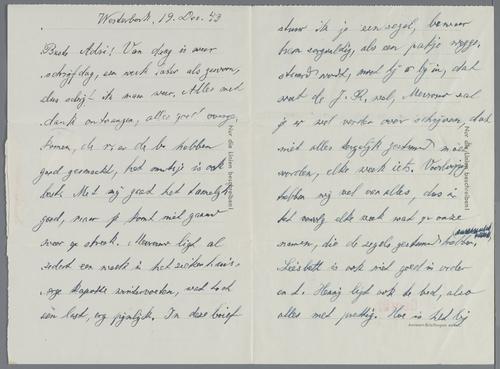 Westerbork, 19. Dec. 43
Beste Adri! Van dag is weer
schrijfdag, een week later als gewoon,
dus schrijf ik maar weer. Alles met
dank ontvangen, alles goed
komen, de de hebben
goed gesmaakt, het is ook
best. Met mij gaat het tamelijk
goed, maar je komt niet gauw
weer op streek. Mevrouw ligt al
sedert een week in het ziekenhuis.
erge kapotte wintervoeten, wat toch
een last, erg pijnlijk. In deze brief
Nur die Linien beschreiben!
stuur ik je een zegel, bewaar
hem zorgvuldig, als een pakje opge-
stuurd wordt, moet hij er bij in, dat
weet de J. R. wel, Mevrouw zal
je er wel verder over schrijven, dat
niet alles tegelijk gestuurd moet
worden, elke week iets. Voorlopig
hebben wij wel van alles, dus is
het elke week wat op onze
namen, die de zegels gestuurd hebben,
Liesbeth is ook niet goed in orde
en d. Henny ligt ook te bed, alzo
alles niet prettig. Hoe is het bij
Nur die Linien beschreiben!